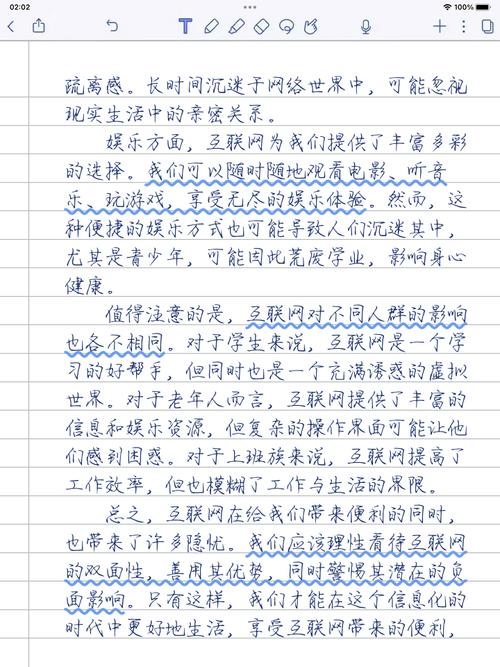 02:02
100%
疏离感。长时间沉迷于网络世界中，可能忽视
现实生活中的亲密关系。
娱乐方面，互联网为我们提供了丰富多彩
的选择。我们可以随时随地观看电影、听音
乐、玩游戏，享受无尽的娱乐体验。然而，这
种便捷的娱乐方式也可能导致人们沉迷其中，
尤其是青少年，可能因此荒废学业，影响身心
健康。
值得注意的是，互联网对不同人群的影响
也各不相同。对于学生来说，互联网是一个学
习的好帮手，但同时也是一个充满诱惑的虚拟
世界。对于老年人而言，互联网提供了丰富的
信息和娱乐资源，但复杂的操作界面可能让他
们感到困惑。对于上班族来说，互联网提高了
工作效率，但也模糊了工作与生活的界限。
总之，互联网在给我们带来便利的同时，
也带来了许多隐忧。我们应该理性看待互联网
的双面性，善用其优势，同时警惕其潜在的负
面影响。只有这样，我们才能在这个信息化的
时代中更好地生活，享受互联网带来的便利，